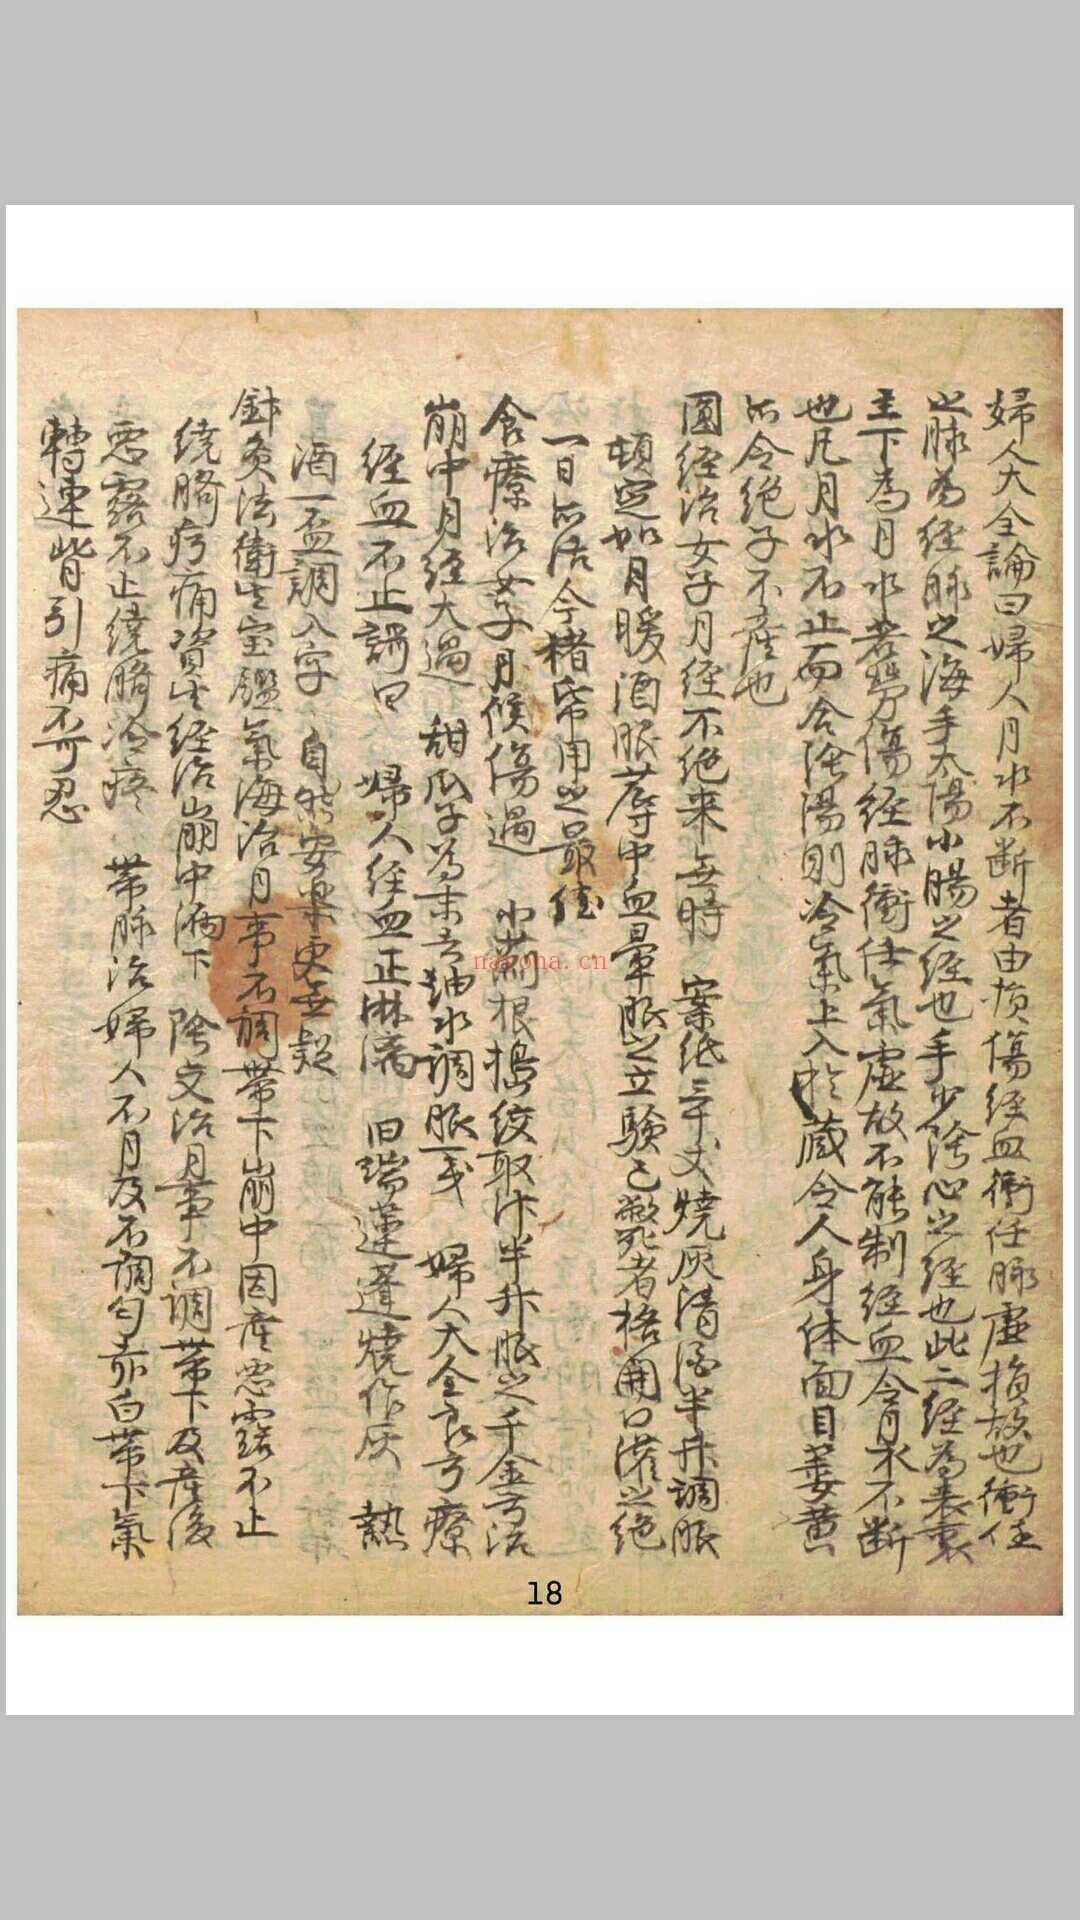 婦人大全論曰婦人月水不断者由損傷経血衝任脈虚損故也衝任
之脉為経脉之海手太陽小腸之経也手少陰心之経也此二経為表裏
主下為月水若勞傷経脉衝任氣虚故不能制経血令月水不断
也凡月水不止而合陰陽則冷氣上入於蔵令人身体面目萎黄
亦令絶子不産也
圖経治女子月経不絶来無時 案紙三十丈燒灰清酒半升調服
頓定如月暖酒服蓐中血暈服之立驗已斃死者挌開口灌之絶
一日亦活今楮帋用之最佳
食療治女子月候傷過 小薊根搗絞取汁半升服之千金方治
崩中月経大過 甜瓜子為末去油水調服一戋 婦人大全良方療
経血不止謌曰 婦人経血正淋漓 旧瑞蓮蓬燒作灰 熱
酒一盃調入字 自然安樂更無疑
針灸法衛生宝鑑氣海治月事不調帶下崩中因産悪露不止
繞臍㽲痛資生経治崩中漏下 陰交治月事不調帶下及産後
悪露不止繞臍冷疼 帶脉治婦人不月及不調匀赤白帶下氣
轉連背引痛不可忍
nayona.cn
18